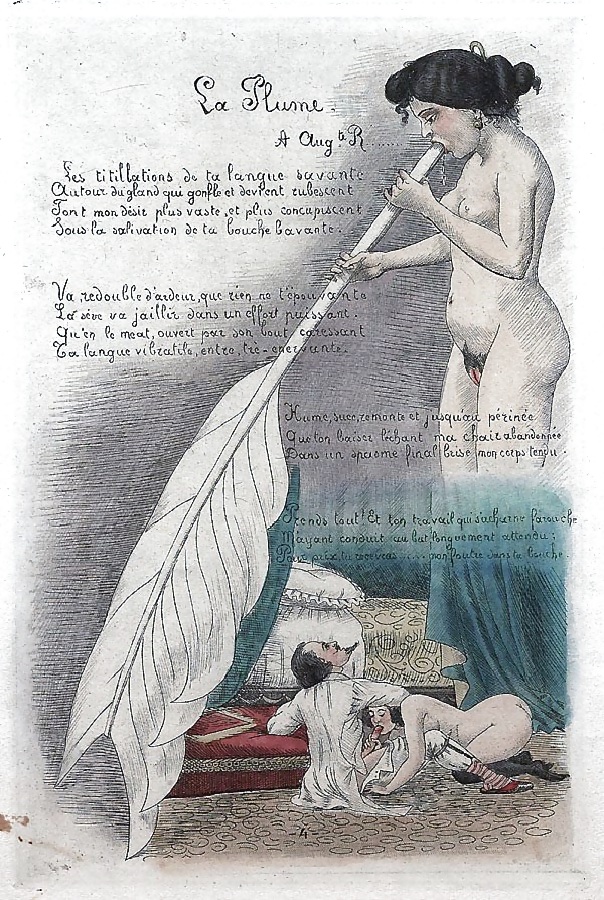 La Plume.
A Aug<sup>te</sup> R......
Les titillations de ta langue savante
Autour du gland qui gonfle et devient rubescent
Font mon désir plus vaste et plus concupiscent
Sous la salivation de ta bouche bavante.
Va, redouble d'ardeur, que rien ne t'épouvante
La sève va jaillir dans un effort puissant.
Qu'en le meat, ouvert par son bout caressant
Ta langue vibratile, entre, très-énervante.
Hume, suce, remonte et jusqu'au périnée
Que ton baiser léchant ma chair abandonnée
Dans un spasme final brise mon corps tendu.
Prends tout! Et ton travail qui s'acharne farouche
M'ayant conduit au but longuement attendu;
Pour prix, tu recevras.... mon foutre dans ta bouche.
4